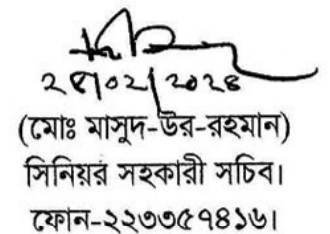 ২৪/০২/২০২৪
(মোঃ মাসুদ-উর-রহমান)
সিনিয়র সহকারী সচিব।
ফোন-২২৩৩৫৭৪১৬।